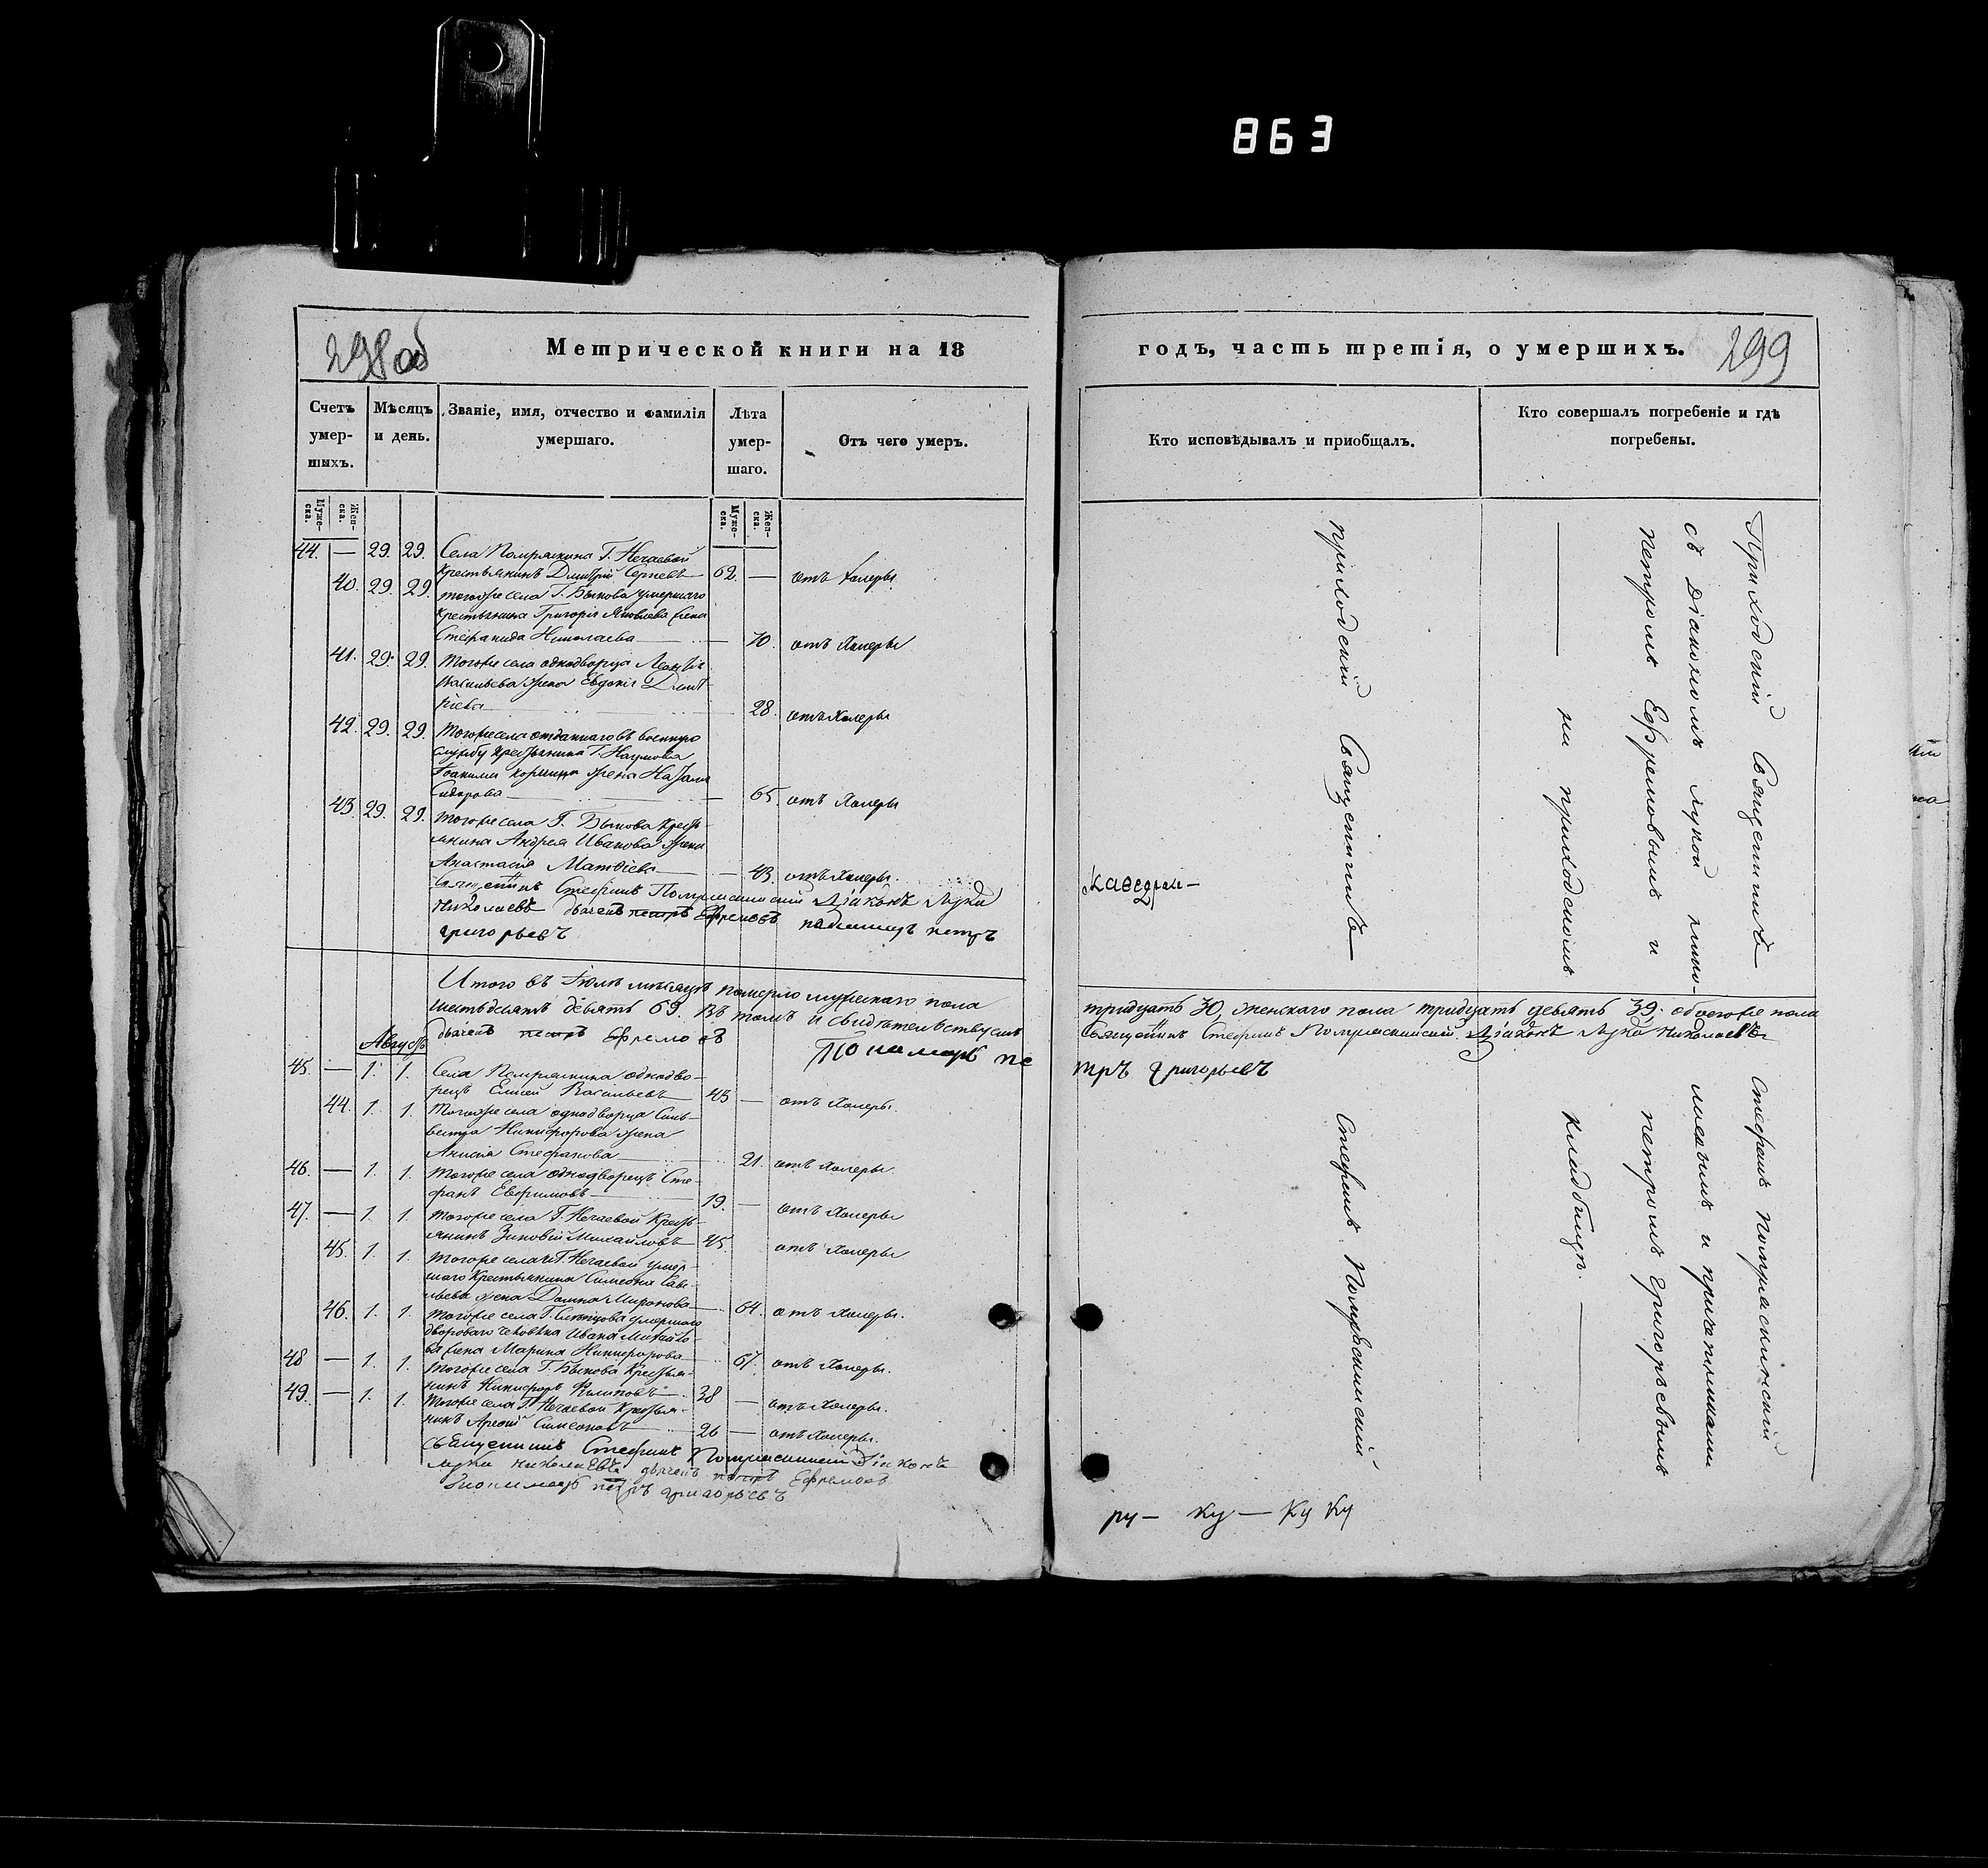 863
298 об
Метрической книги на 18
Счетъ умер-шыхъ.
Мѣсяцъ и день.
Званіе, имя, отчество и фамилія умершаго.
Лѣта умер-шаго.
Отъ чего умеръ.
Муже-ска.
Жен-ска.
Муже-ска.
Жен-ска.
44. — 29. 29. Села Потряскина Г. Нечаевой
крестьянинъ Дмитрій Сергеевъ 62. — отъ холеры.
40. 29. 29. тогоже села Г. Быкова умершаго
крестьянина Григорія Яковлева жена
Стефанида Николаева — 70. отъ холеры
41. 29. 29. тогоже села однодворца Леонтія
Васильева жена Евдокія Дмит-
ріева 28. отъ холеры
42. 29. 29. тогоже села отданнаго въ военную
службу крестьянина Г. Наумова
жена
Сидорова — 65. отъ холеры
43. 29. 29. тогоже села Г. Быкова кресть-
янина Андрея Иванова жена
Анастасія Матвіева — 43. отъ холеры.
Священникъ Стефанъ Потряскинскій Діаконъ Лука
Николаевъ дьячекъ петръ Ефремовъ пономарь петръ
григорьевъ
Итого въ Іюлѣ мѣсяцѣ померло мужескаго пола
шестьдесятъ девять 69. Въ томъ и свидѣтельствуемъ
дьячекъ петръ Ефремовъ Пономарь пе
Августъ
45. — 1. 1. Села Потряскина однодво-
рецъ Елисей Васильевъ 43 — отъ холеры.
44. 1. 1. тогоже села однодворца Силь-
вестра Никифорова жена
Анисія Стефанова 21. отъ холеры.
46. — 1. 1. тогоже села однодворецъ Сте-
фанъ Евфимовъ 19. — отъ холеры
47. — 1. 1. тогоже села Г. Нечаевой кресть-
янинъ Зиновій Михайловъ 45. отъ холеры
45. 1. 1. тогоже села Г. Нечаевой умер-
шаго крестьянина Симеона Саве-
льева жена Домна Миронова 64. отъ холеры.
46. 1. 1. тогоже села Г. умершаго
двороваго человѣка Ивана Михайло-
ва жена Марина Никифорова 67. отъ холеры.
48 — 1. 1. тогоже села Г. Быкова крестья-
нинъ Никифоръ Филиповъ 38 — отъ холеры.
49. — 1. 1. тогоже села Г. Нечаевой крестья-
нинъ Симеоновъ 26 — отъ холеры.
священникъ Стефанъ Потряскинскій Діаконъ
лука николаевъ дьячекъ петръ Ефремовъ
пономарь петръ григорьевъ
годъ, часть третія, о умершихъ.
299
Кто исповѣдывалъ и пріобщалъ.
Кто совершалъ погребеніе и гдѣ погребены.
приходскій Священникъ
Приходскій Священникъ
съ Діакономъ лукой нико-
петромъ Ефремовымъ и
на приходскомъ
Каѳедрал-
тридцать 30, женскаго пола тридцать девять 39; обоегоже пола
Священникъ Стефанъ Потряскинскій. Діаконъ Лука Николаевъ
тръ григорьевъ
Стефанъ Потряскинскій
Стефанъ Потряскинскій
лаевымъ и причетниками
петромъ Григорьевымъ
кладбищѣ.
ру- ку — ку ку